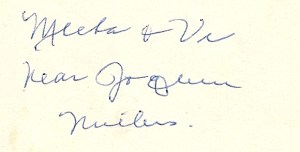 Meeta & Vi
near Joaquin
Millers.